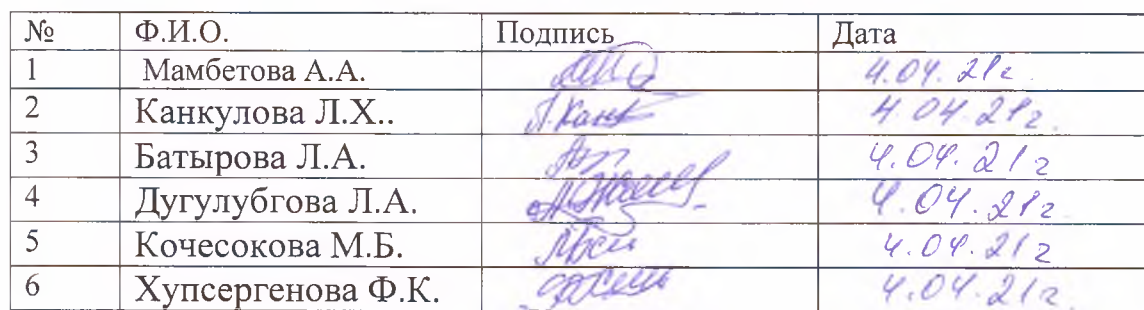 № Ф.И.О. Подпись Дата
1 Мамбетова А.А. 4.04.21г
2 Канкулова Л.Х.. Л.Канк 4.04.21г.
3 Батырова Л.А. 4.04.21г
4 Дугулубгова Л.А. 4.04.21г
5 Кочесокова М.Б. 4.04.21г
6 Хупсергенова Ф.К. 4.04.21г.